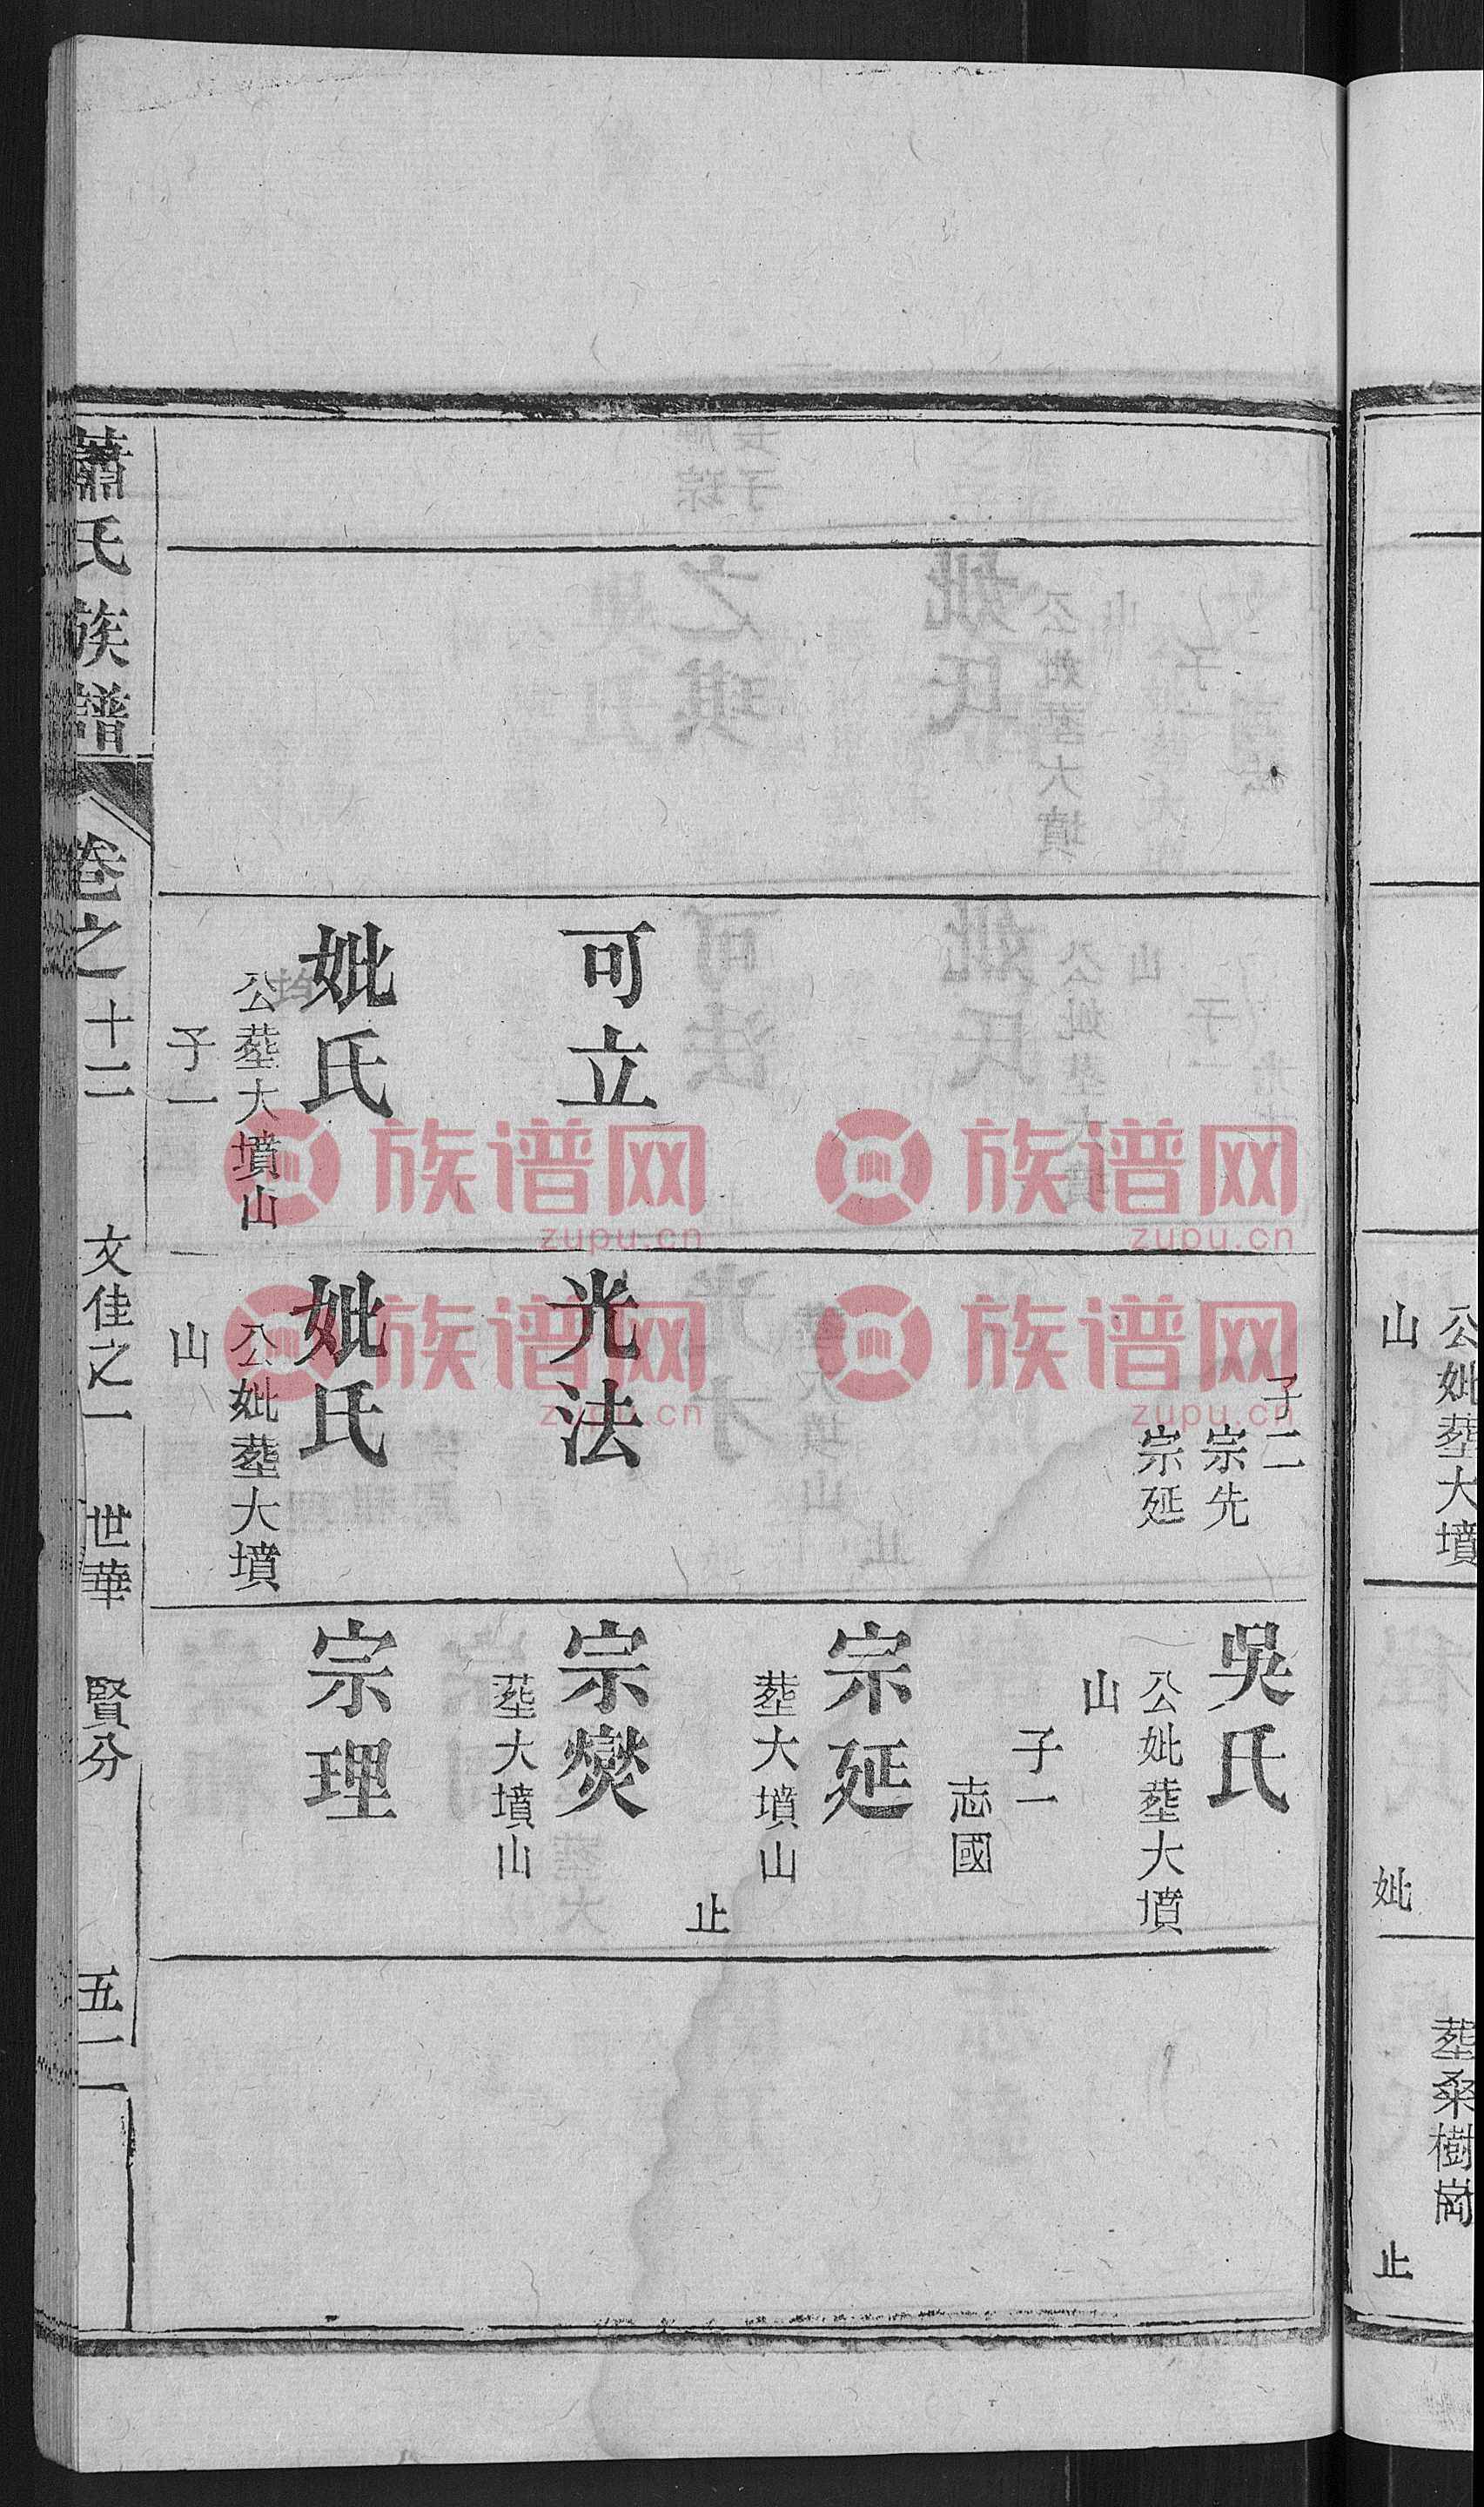 公妣塟大墳
山
妣
塟桑樹崗
止
可立
妣氏
公塟大墳山
子一
子二
宗先
宗延
光法
妣氏
公妣塟大墳
山
吳氏
公妣塟大墳
山
子一
志國
宗延
塟大墳山
止
宗爕
塟大墳山
宗理
蕭氏族譜
卷之十二
文佳之一
世華
賢分
五一
族谱网
zupu.cn
族谱网
zupu.cn
族谱网
zupu.cn
族谱网
zupu.cn